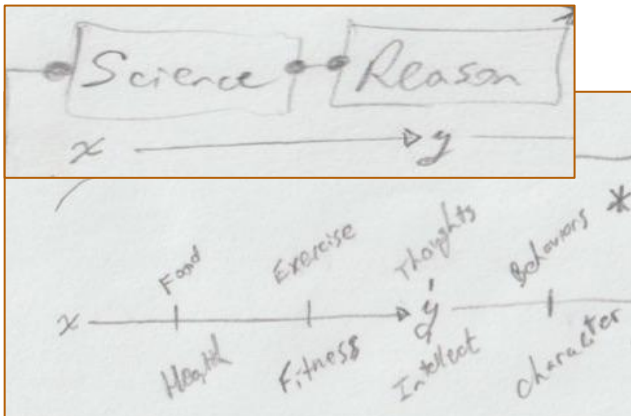 Science Reason
x y
*
Food Exercise Thoughts Behaviors
x y
Health Fitness Intellect Character